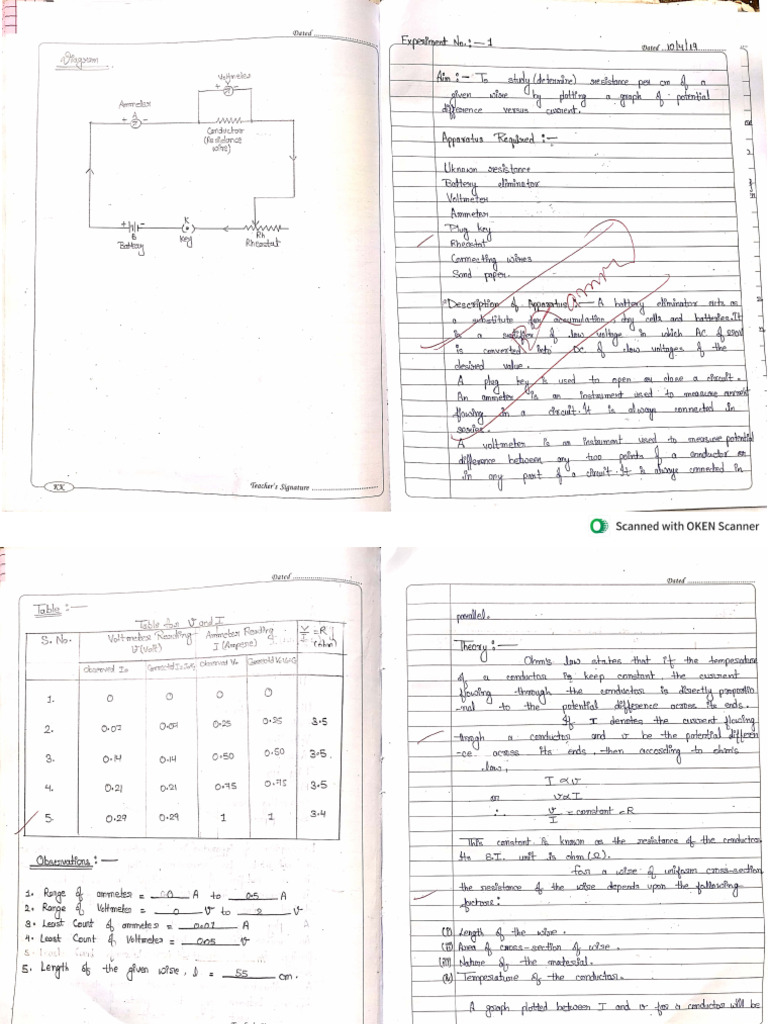 Dated
Diagram
Voltmeter
+ V -
Ammeter
+ A -
Conductor
(Resistance
wire)
+ -
B
Battery
K
(•)
Key
Rh
Rheostat
KK
Teacher's Signature
Experiment No.:- 1
Dated 10/4/19
Aim :- To study (determine) resistance per cm of a
given wire by plotting a graph of potential
difference versus current.
Apparatus Required :-
Uknown resistance
Battery eliminator
Voltmeter
Ammeter
Plug key
Rheostat
Connecting wires
Sand paper.
Description of Apparatus :- A battery eliminator acts as
a substitute for accumulation, dry cells and batteries. It
is a of low voltage in which AC of 220V
is converted into DC of low voltages of the
desired value.
A plug key is used to open or close a circuit.
An ammeter is an instrument used to measure current
flowing in a circuit. It is always connected in
series.
A voltmeter is an instrument used to measure potential
difference between any two points of a conductor or
in any part of a circuit. It is always connected in
Scanned with OKEN Scanner
Dated
Table :-
Table for V and I
S. No. Voltmeter Reading V (Volt) Ammeter Reading I (Ampere) V/I = R (ohm)
Observed
1. 0 0 0 0
2. 0.07 0.07 0.25 0.25 3.5
3. 0.14 0.14 0.50 0.50 3.5
4. 0.21 0.21 0.75 0.75 3.5
5. 0.29 0.29 1 1 3.4
Observations :-
1. Range of ammeter = A to A
2. Range of Voltmeter = 0 V to 2 V
3. Least Count of ammeter = A
4. Least Count of Voltmeter = 0.05 V
5. Length of the given wire, l = 55 cm.
Dated
parallel.
Theory :-
Ohm's law states that if the temperature
of a conductor is keep constant, the current
flowing through the conductor is directly proportio
-nal to the potential difference across its ends.
If I denotes the current flowing
through a conductor and v be the potential differen
-ce across its ends, then according to ohm's
law,
I ∝ v
or v ∝ I
∴ v/I = constant = R
This constant is known as the resistance of the conductor.
Its S.I. unit is ohm (Ω).
For a wire of uniform cross-section
the resistance of the wire depends upon the following
factors:
(i) Length of the wire.
(ii) Area of cross-section of wire.
(iii) Nature of the material.
(iv) Temperature of the conductor.
A graph plotted between I and v for a conductor will be